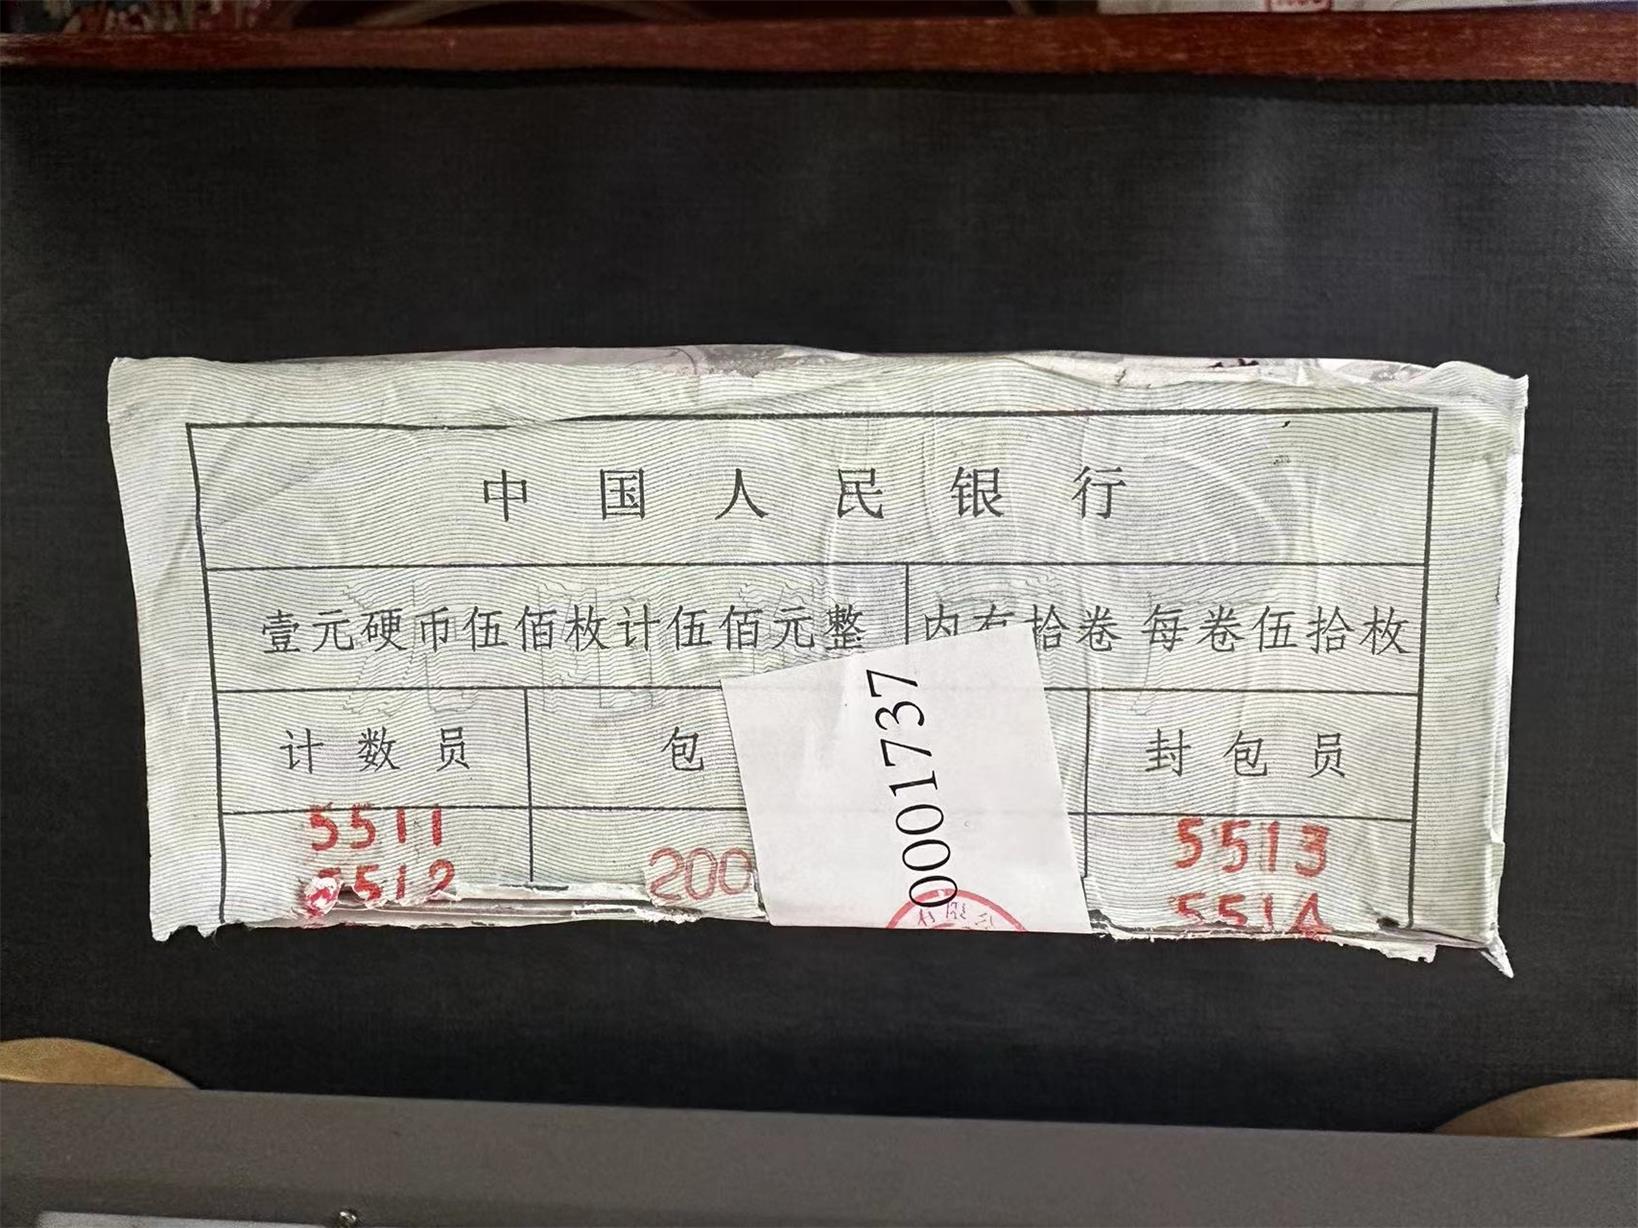 中国人民银行
壹元硬币伍佰枚计伍佰元整 内有拾卷 每卷伍拾枚
计数员 包 封包员
5511 5513
5512 200 5514
0001737